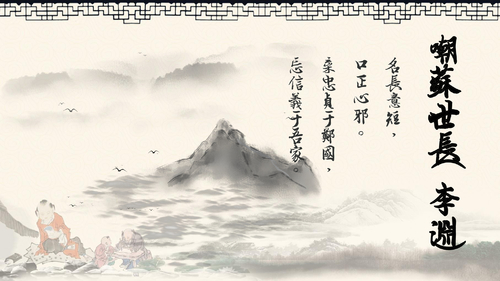 嘲蘇世長 李淵
名長意短，
口正心邪。
棄忠貞于鄭國，
忘信義于吾家。